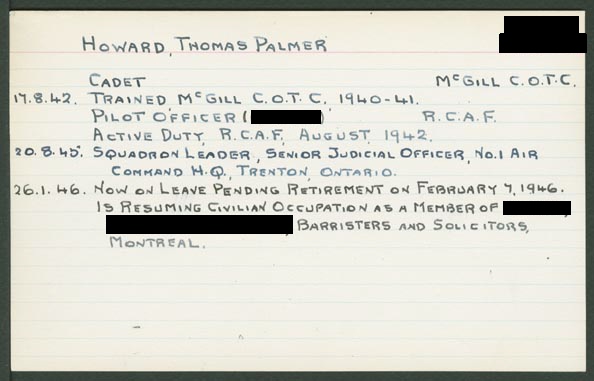 HOWARD, THOMAS PALMER
CADET McGILL C.O.T.C.
17.8.42. TRAINED McGILL C.O.T.C. 1940-41.
PILOT OFFICER ( ) R.C.A.F.
ACTIVE DUTY, R.C.A.F., AUGUST, 1942.
20.8.45. SQUADRON LEADER, SENIOR JUDICIAL OFFICER, NO.1 AIR
COMMAND H.Q., TRENTON, ONTARIO.
26.1.46. NOW ON LEAVE PENDING RETIREMENT ON FEBRUARY 7, 1946.
IS RESUMING CIVILIAN OCCUPATION AS A MEMBER OF ,
, BARRISTERS AND SOLICITORS,
MONTREAL.